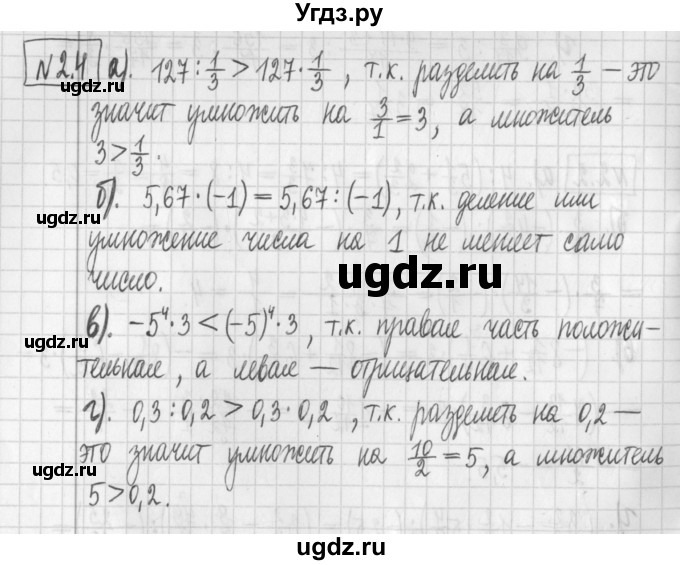 Угдз.ру
№2.4 а). 127 : 1/3 > 127 · 1/3 , т.к. разделить на 1/3 — это
значит умножить на 3/1 = 3, а множитель
3 > 1/3 .
б). 5,67 · (-1) = 5,67 : (-1), т.к. деление или
умножение числа на 1 не меняет само
число.
в). -5⁴ · 3 < (-5)⁴ · 3 , т.к. правая часть положи-
тельная, а левая — отрицательная.
г). 0,3 : 0,2 > 0,3 · 0,2 , т.к. разделить на 0,2 —
это значит умножить на 10/2 = 5, а множитель
5 > 0,2 .
ugdz.ru
ugdz.ru
ugdz.ru
ugdz.ru
ugdz.ru
ugdz.ru
ugdz.ru
ugdz.ru
ugdz.ru